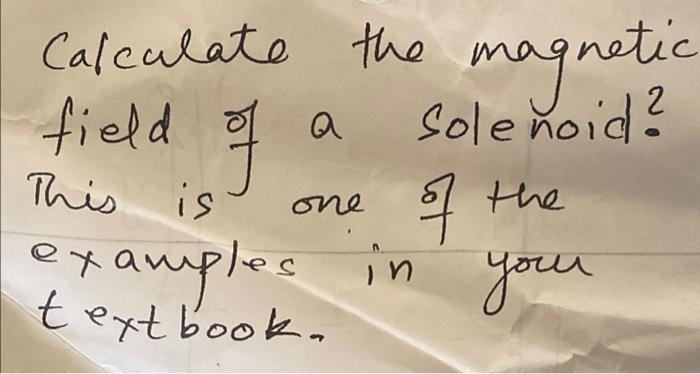 Calculate the magnetic
field of a solenoid?
This is one of the
examples in your
textbook.